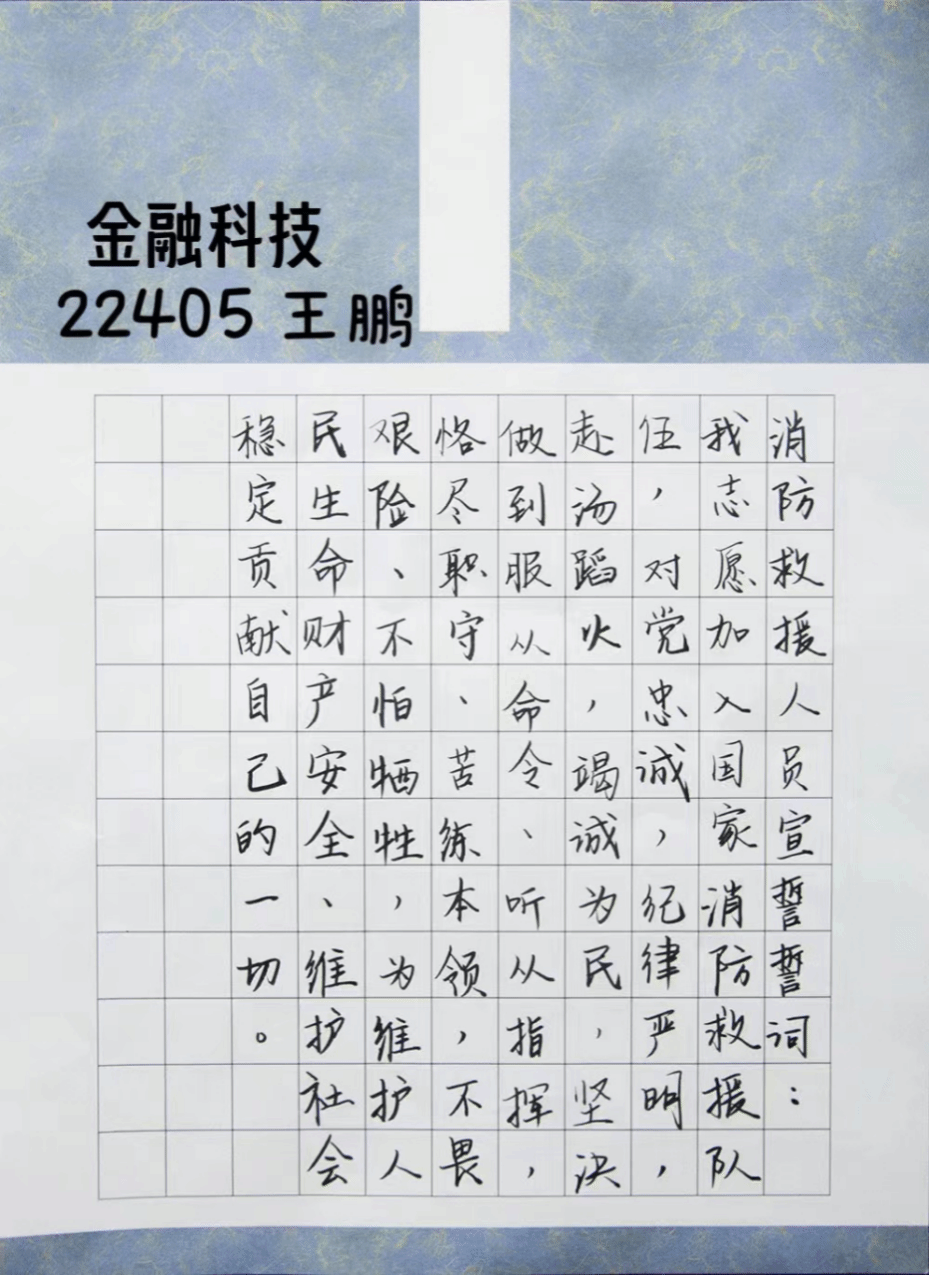 金融科技
22405 王鹏
消防救援人员宣誓誓词：
我志愿加入国家消防救援队
伍，对党忠诚，纪律严明，
赴汤蹈火，竭诚为民，坚决
做到服从命令、听从指挥，
恪尽职守、苦练本领，不畏
艰险、不怕牺牲，为维护人
民生命财产安全、维护社会
稳定贡献自己的一切。